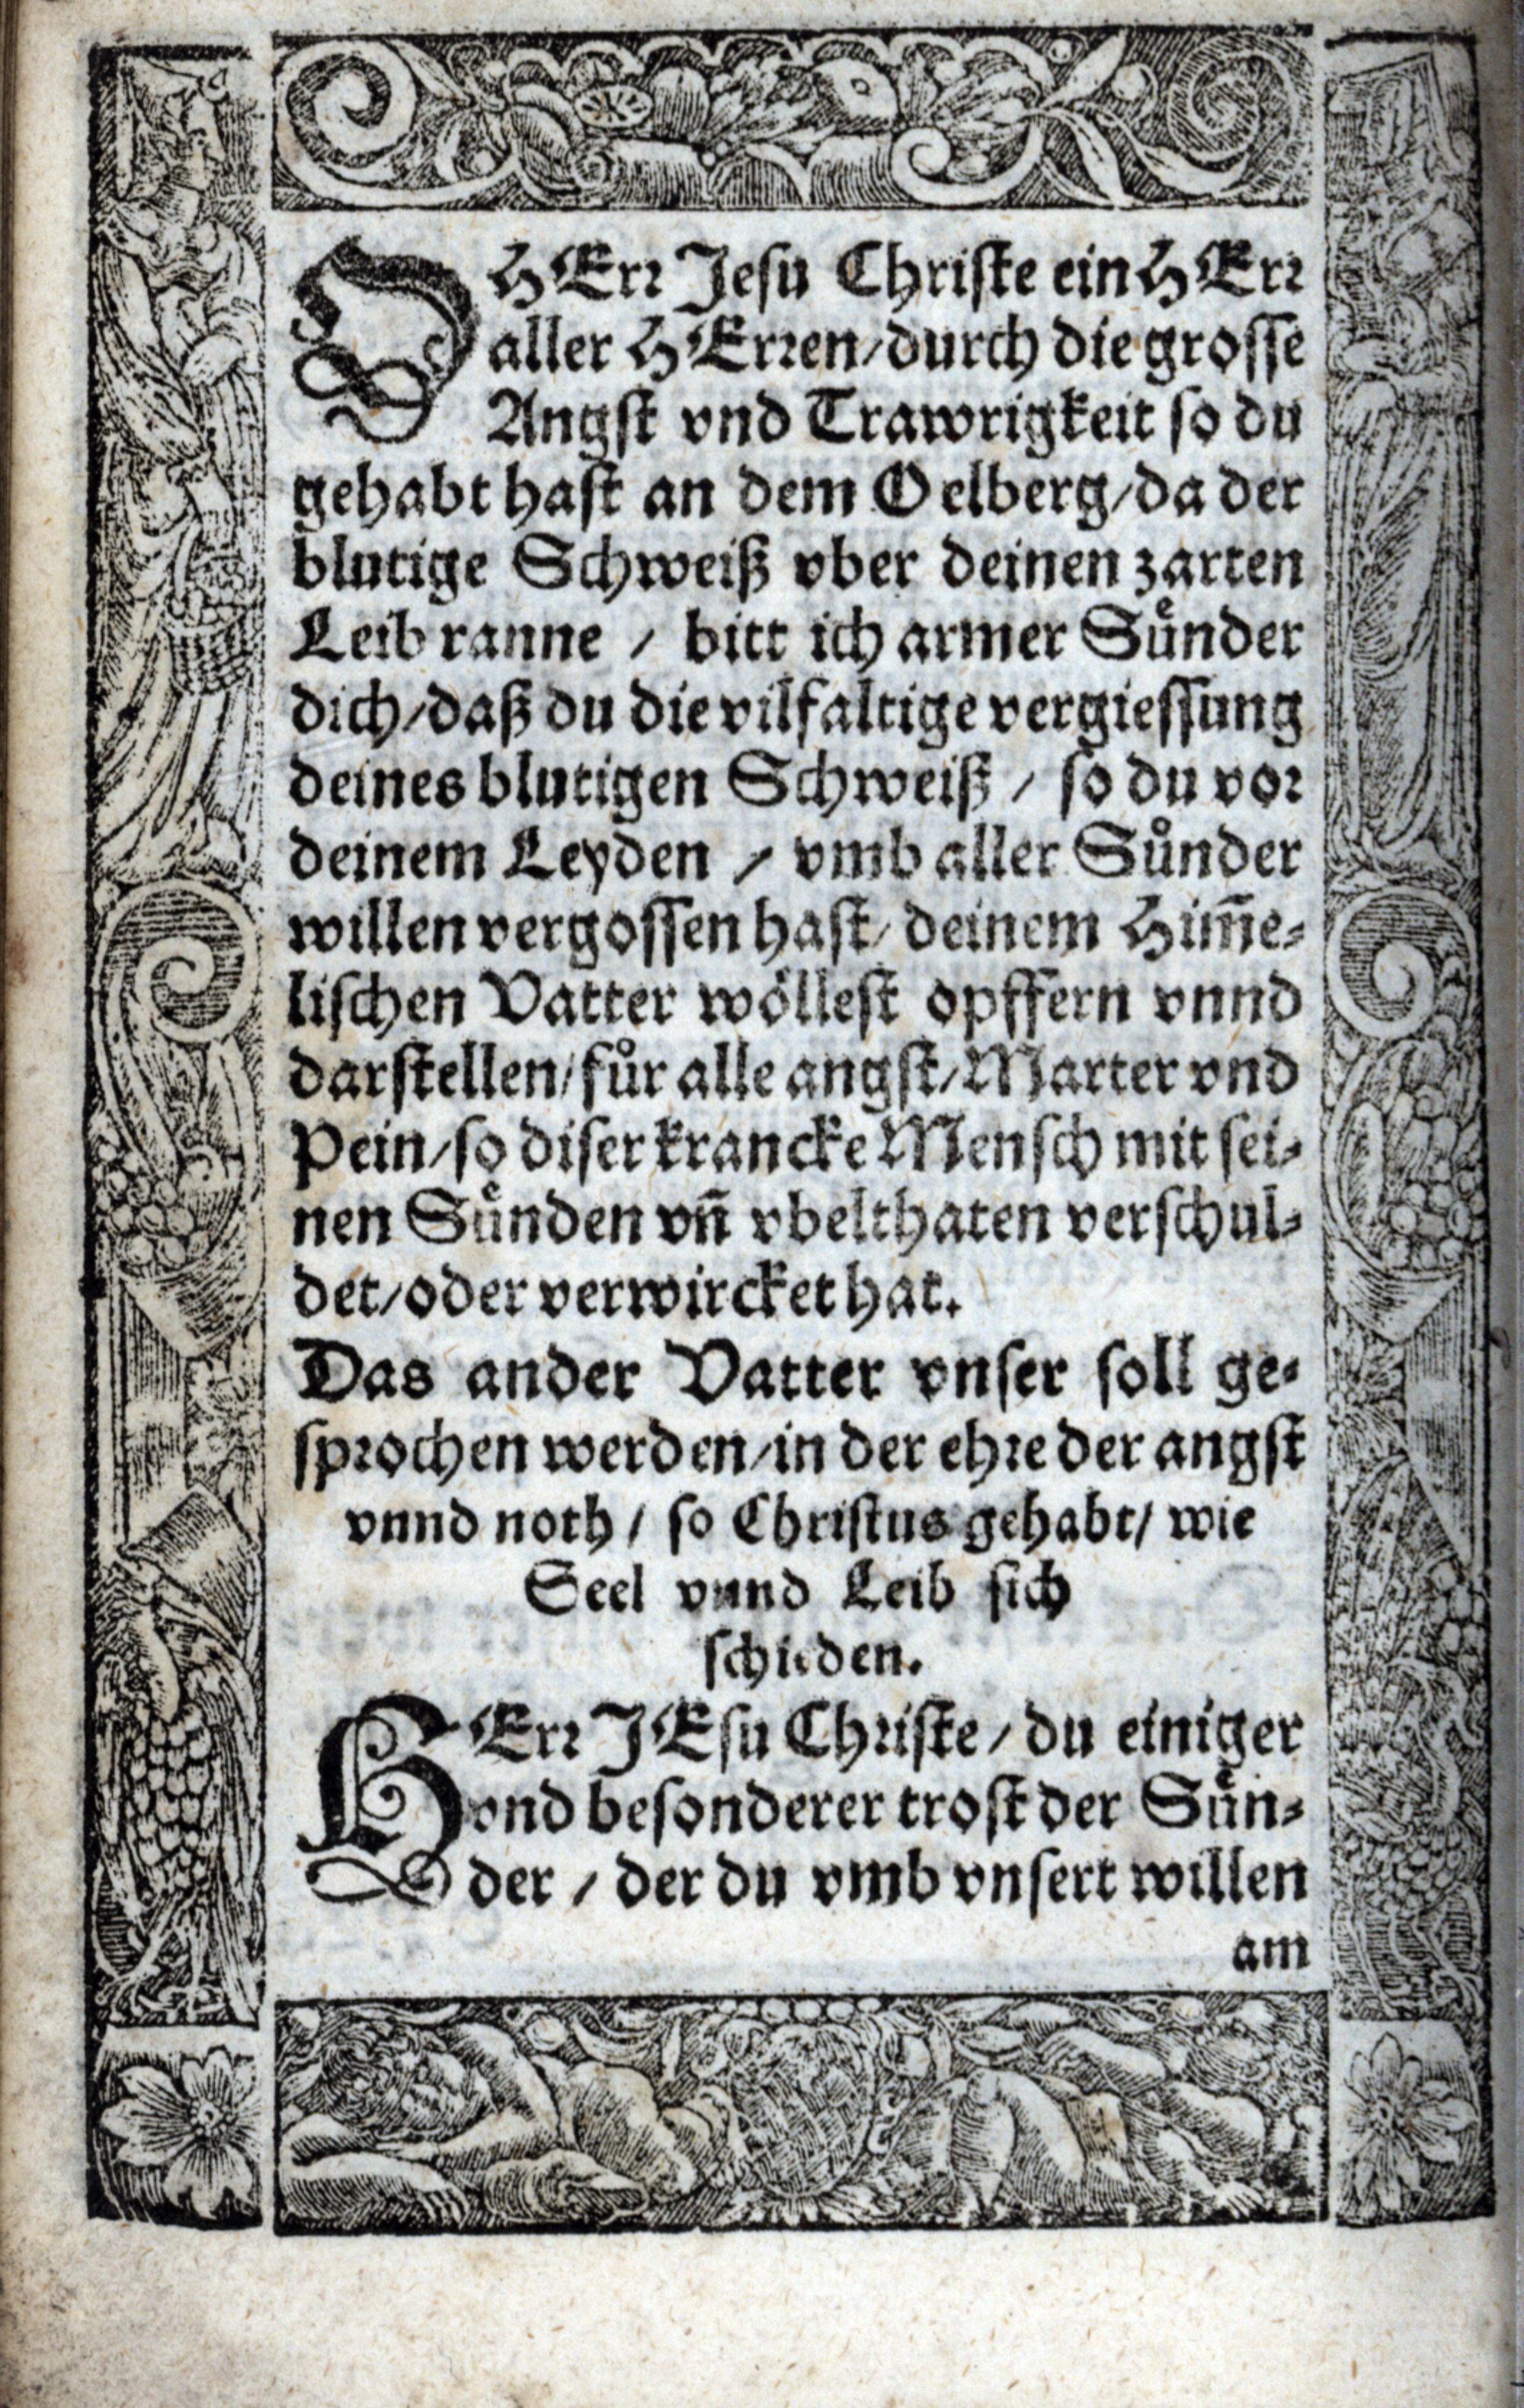 O HErr Jesu Christe ein HErr
aller HErren/durch die grosse
Angst vnd Trawrigkeit so du
gehabt hast an dem Oelberg/da der
blutige Schweiß vber deinen zarten
Leib ranne / bitt ich armer Suͤnder
dich/daß du die vilfaltige vergiessung
deines blutigen Schweiß / so du vor
deinem Leyden / vmb aller Sůnder
willen vergossen hast/ deinem Him̄e-
lischen Vatter wöllest opffern vnnd
darstellen/fůr alle angst/Marter vnd
Pein/so diser krancke Mensch mit sei-
nen Suͤnden vn̄ vbelthaten verschul-
det/oder verwircket hat.
Das ander Vatter vnser soll ge-
sprochen werden/in der ehre der angst
vnnd noth / so Christus gehabt/ wie
Seel vnnd Leib sich
schieden.
HErr JEsu Christe / du einiger
vnd besonderer trost der Suͤn-
der / der du vmb vnsert willen
am